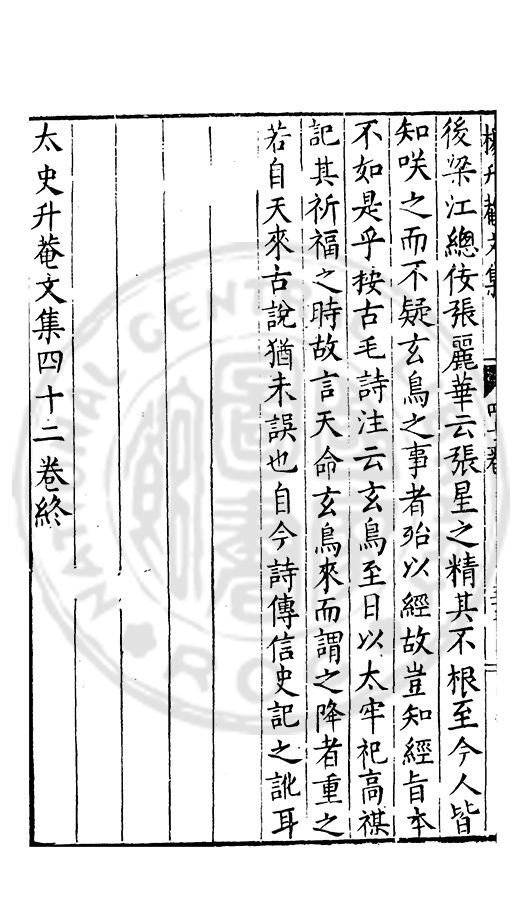 楊升菴文集
四十二卷
後梁江總侫張麗華云張星之精其不根至今人皆
知咲之而不疑玄鳥之事者殆以經故豈知經旨本
不如是乎按古毛詩注云玄鳥至日以太牢祀高禖
記其祈福之時故言天命玄鳥來而謂之降者重之
若自天來古說猶未誤也自今詩傳信史記之訛耳
太史升菴文集四十二卷終